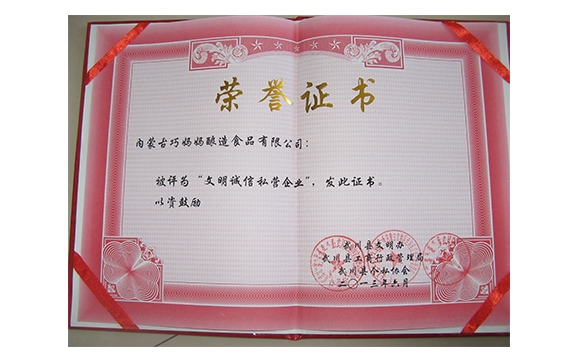 荣誉证书
内蒙古巧妈妈酿造食品有限公司：
被评为“文明诚信私营企业”，发此证书。
以资鼓励
武川县文明办
武川县工商行政管理局
武川县个私协会
二〇一三年六月